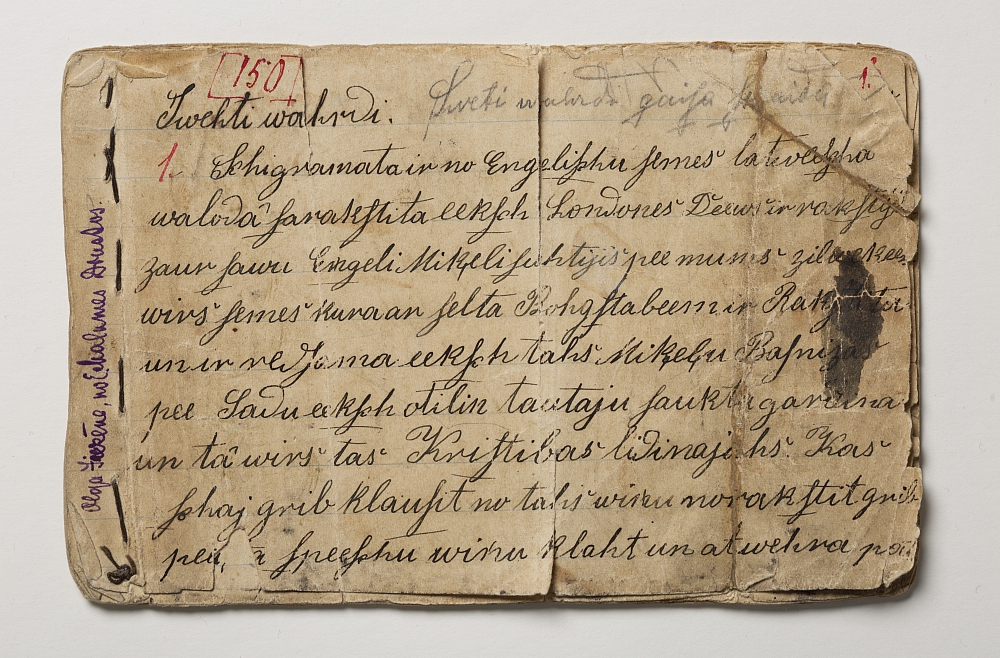 150
1.
Swehti wahrdi.
Sweti wahrda
1. Schigramata ir no Engelißhu semes latweeßha
walodâ sarakstita eeksch Londones Deews ir rakstij
zaur sawu Engeli Mikeli suhtijis pee mums zilwekeem
wirs semes kura ar selta Bohgstabeem ir Rakstita
un ir redsama eeksch tahs Mikelu Basnizas
pee Sadu eeksch otilin tautaju saukta
un tâ wirs tas Kristibas lidinajahs. Kas
ßhaj grib klausit no tahs wiņu norakstit grib
speeßhu wiņu klaht un atwehra
Olga no Drustos.